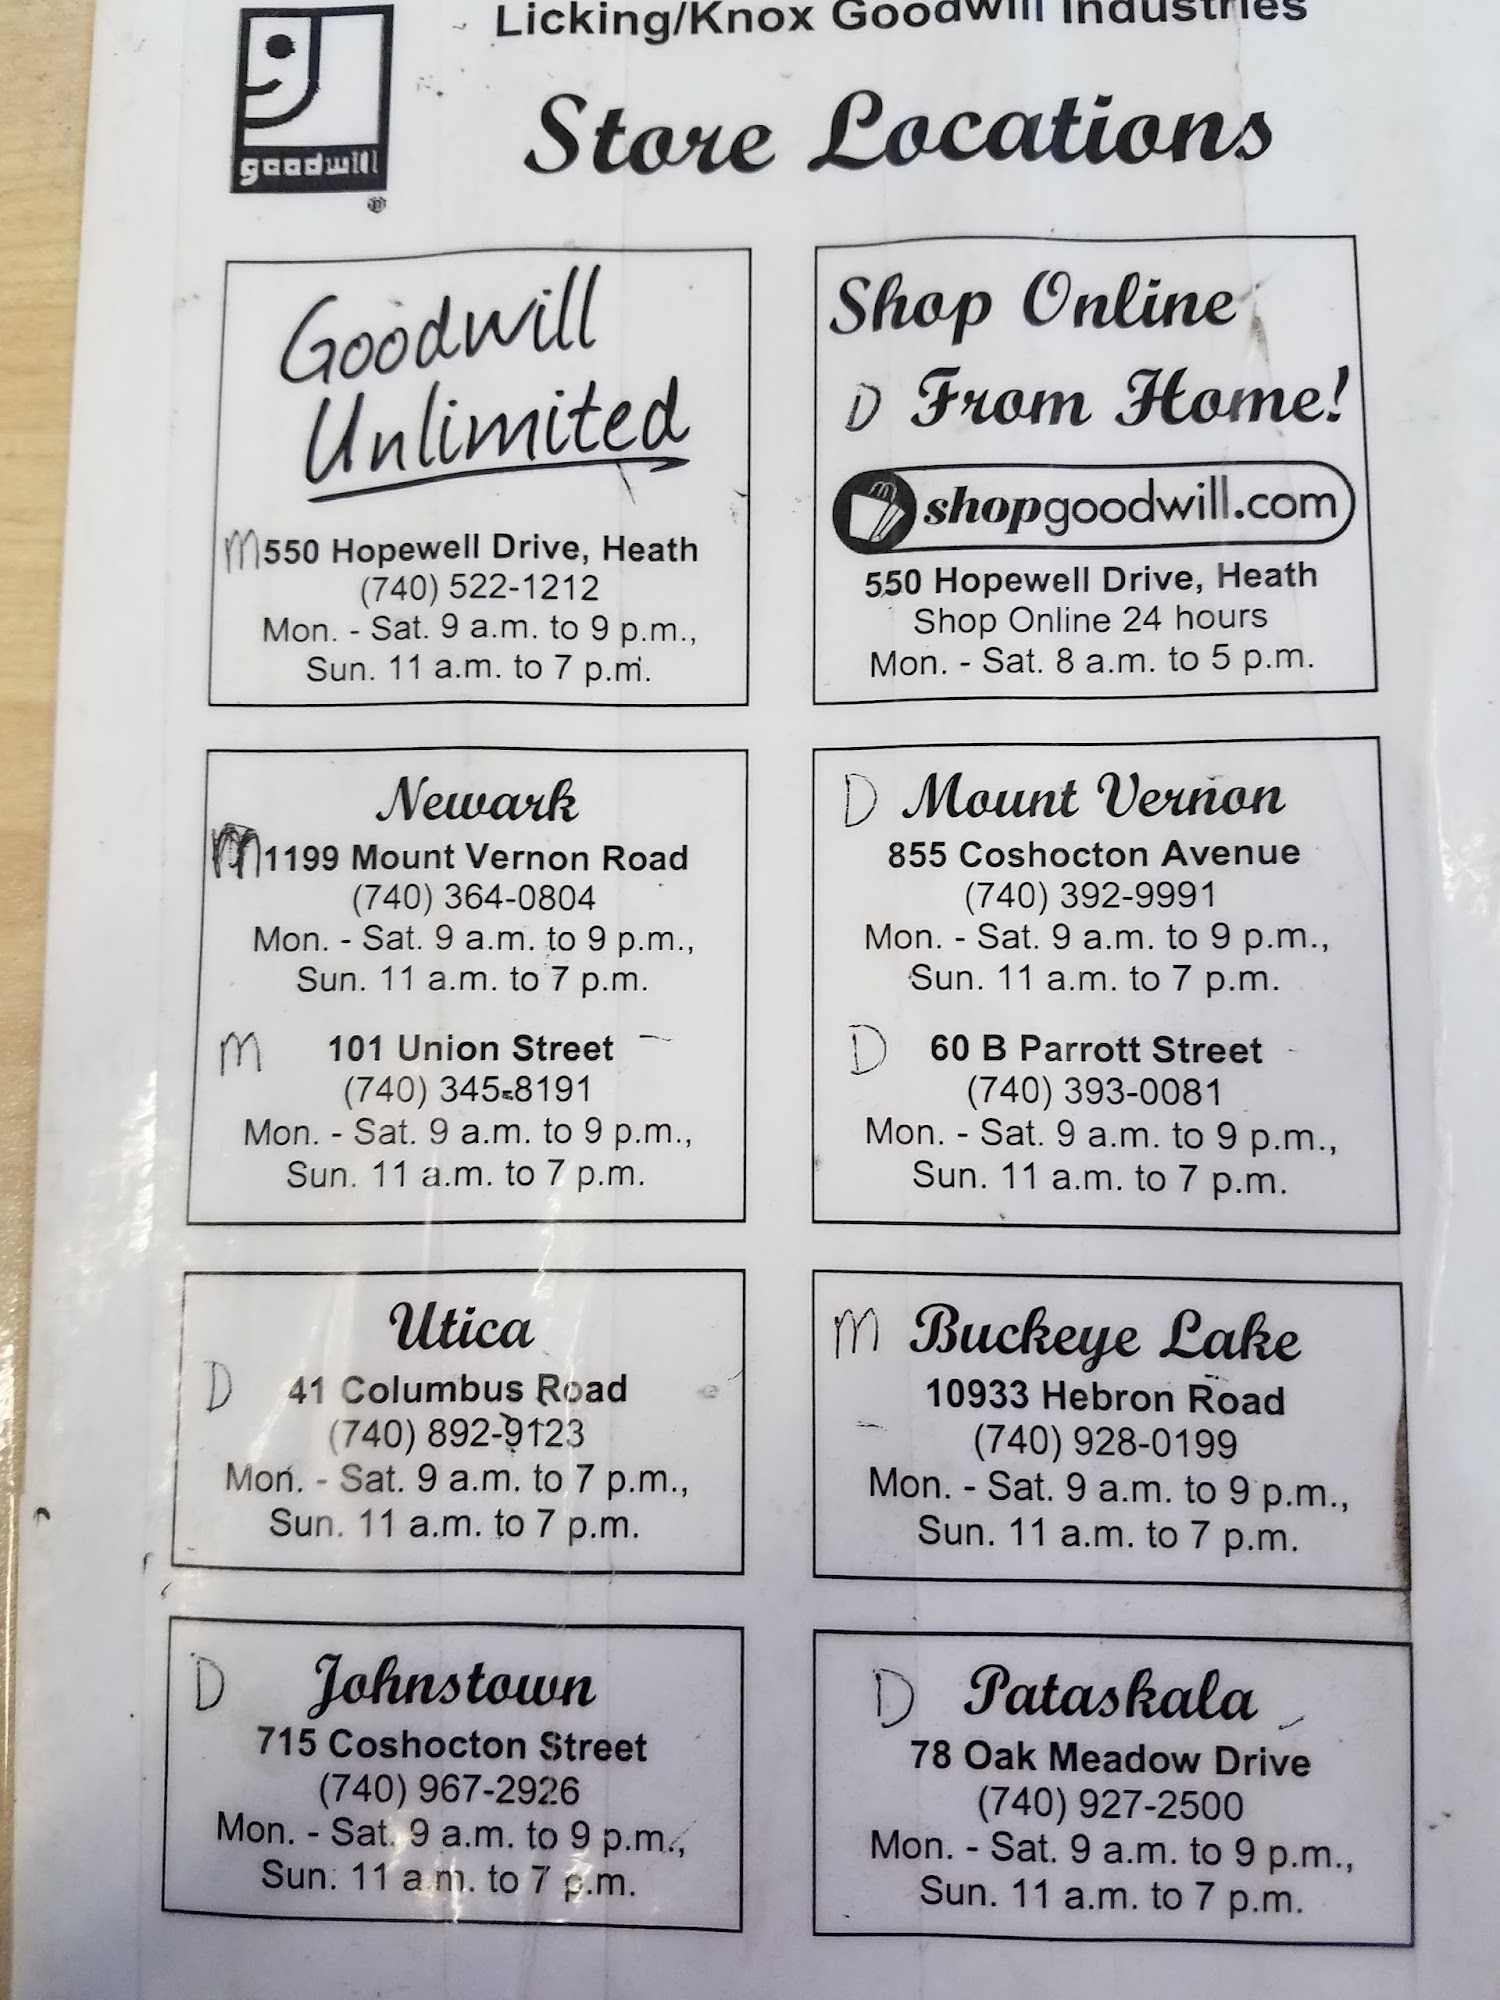 Licking/Knox Goodwill Industries
goodwill
®
Store Locations
Goodwill
Unlimited
M 550 Hopewell Drive, Heath
(740) 522-1212
Mon. - Sat. 9 a.m. to 9 p.m.,
Sun. 11 a.m. to 7 p.m.
Shop Online
D From Home!
shopgoodwill.com
550 Hopewell Drive, Heath
Shop Online 24 hours
Mon. - Sat. 8 a.m. to 5 p.m.
Newark
M 1199 Mount Vernon Road
(740) 364-0804
Mon. - Sat. 9 a.m. to 9 p.m.,
Sun. 11 a.m. to 7 p.m.
M 101 Union Street
(740) 345-8191
Mon. - Sat. 9 a.m. to 9 p.m.,
Sun. 11 a.m. to 7 p.m.
D Mount Vernon
855 Coshocton Avenue
(740) 392-9991
Mon. - Sat. 9 a.m. to 9 p.m.,
Sun. 11 a.m. to 7 p.m.
D 60 B Parrott Street
(740) 393-0081
Mon. - Sat. 9 a.m. to 9 p.m.,
Sun. 11 a.m. to 7 p.m.
Utica
D 41 Columbus Road
(740) 892-9123
Mon. - Sat. 9 a.m. to 7 p.m.,
Sun. 11 a.m. to 7 p.m.
M Buckeye Lake
10933 Hebron Road
(740) 928-0199
Mon. - Sat. 9 a.m. to 9 p.m.,
Sun. 11 a.m. to 7 p.m.
D Johnstown
715 Coshocton Street
(740) 967-2926
Mon. - Sat. 9 a.m. to 9 p.m.,
Sun. 11 a.m. to 7 p.m.
D Pataskala
78 Oak Meadow Drive
(740) 927-2500
Mon. - Sat. 9 a.m. to 9 p.m.,
Sun. 11 a.m. to 7 p.m.